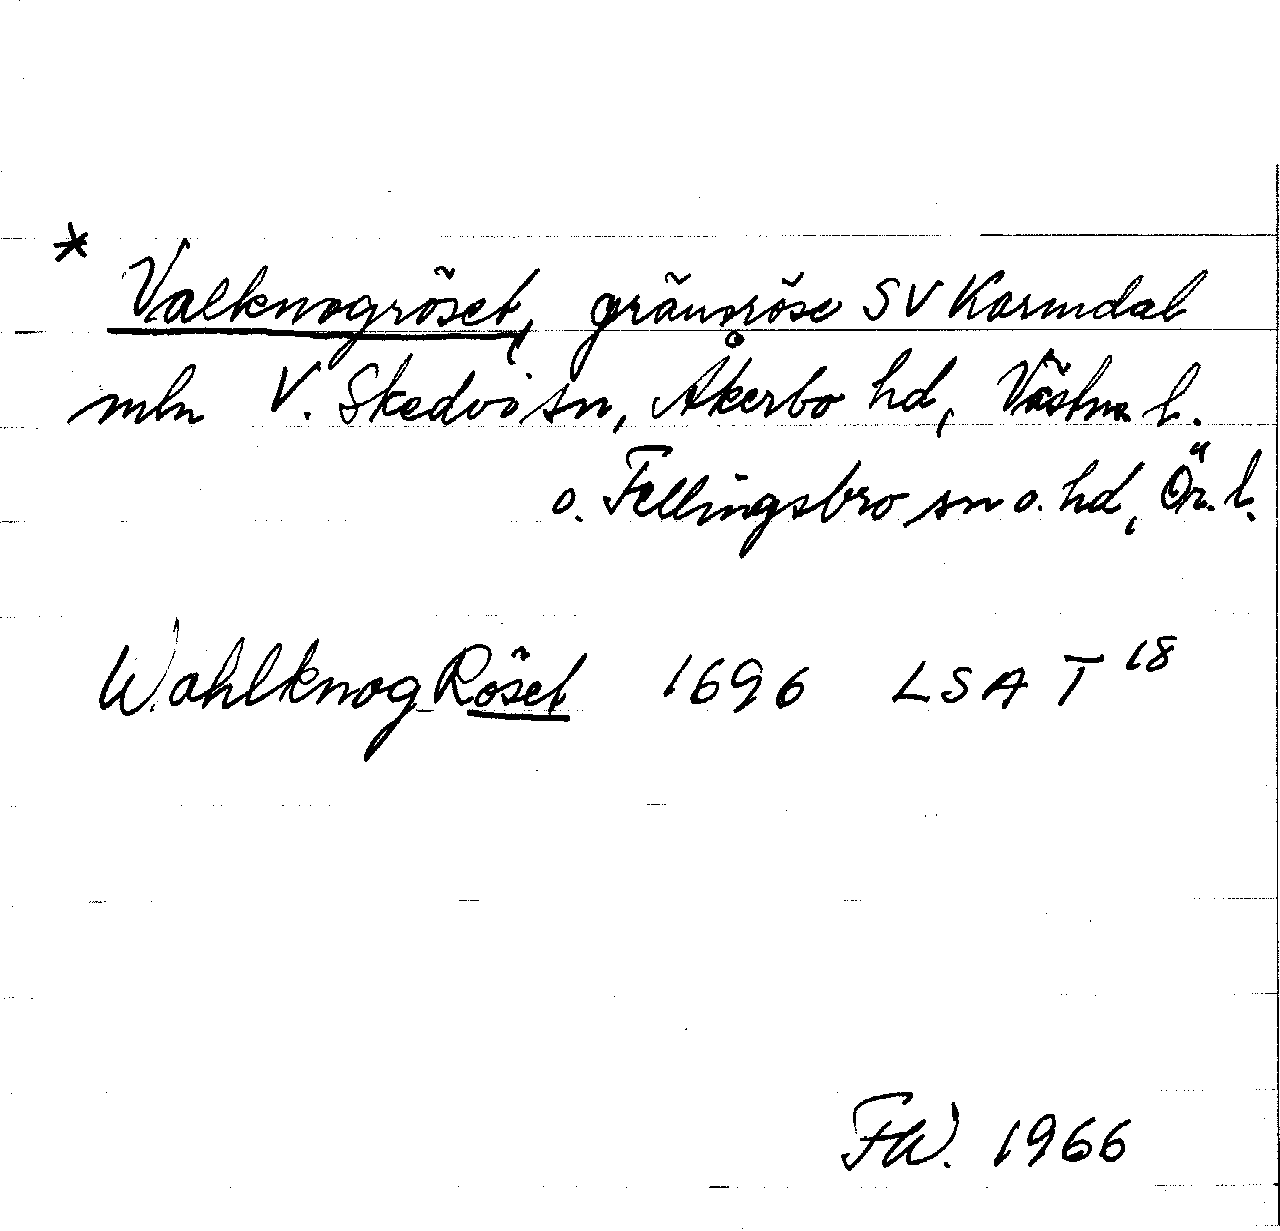 * Valknogröset, gränsröse SV Karmdal
mln V. Skedvi sn, Åkerbo hd, Västm l.
o. Fellingsbro sn o. hd, Ör. l.
Wahlknog Röset 1696 LSA T 18
FW. 1966